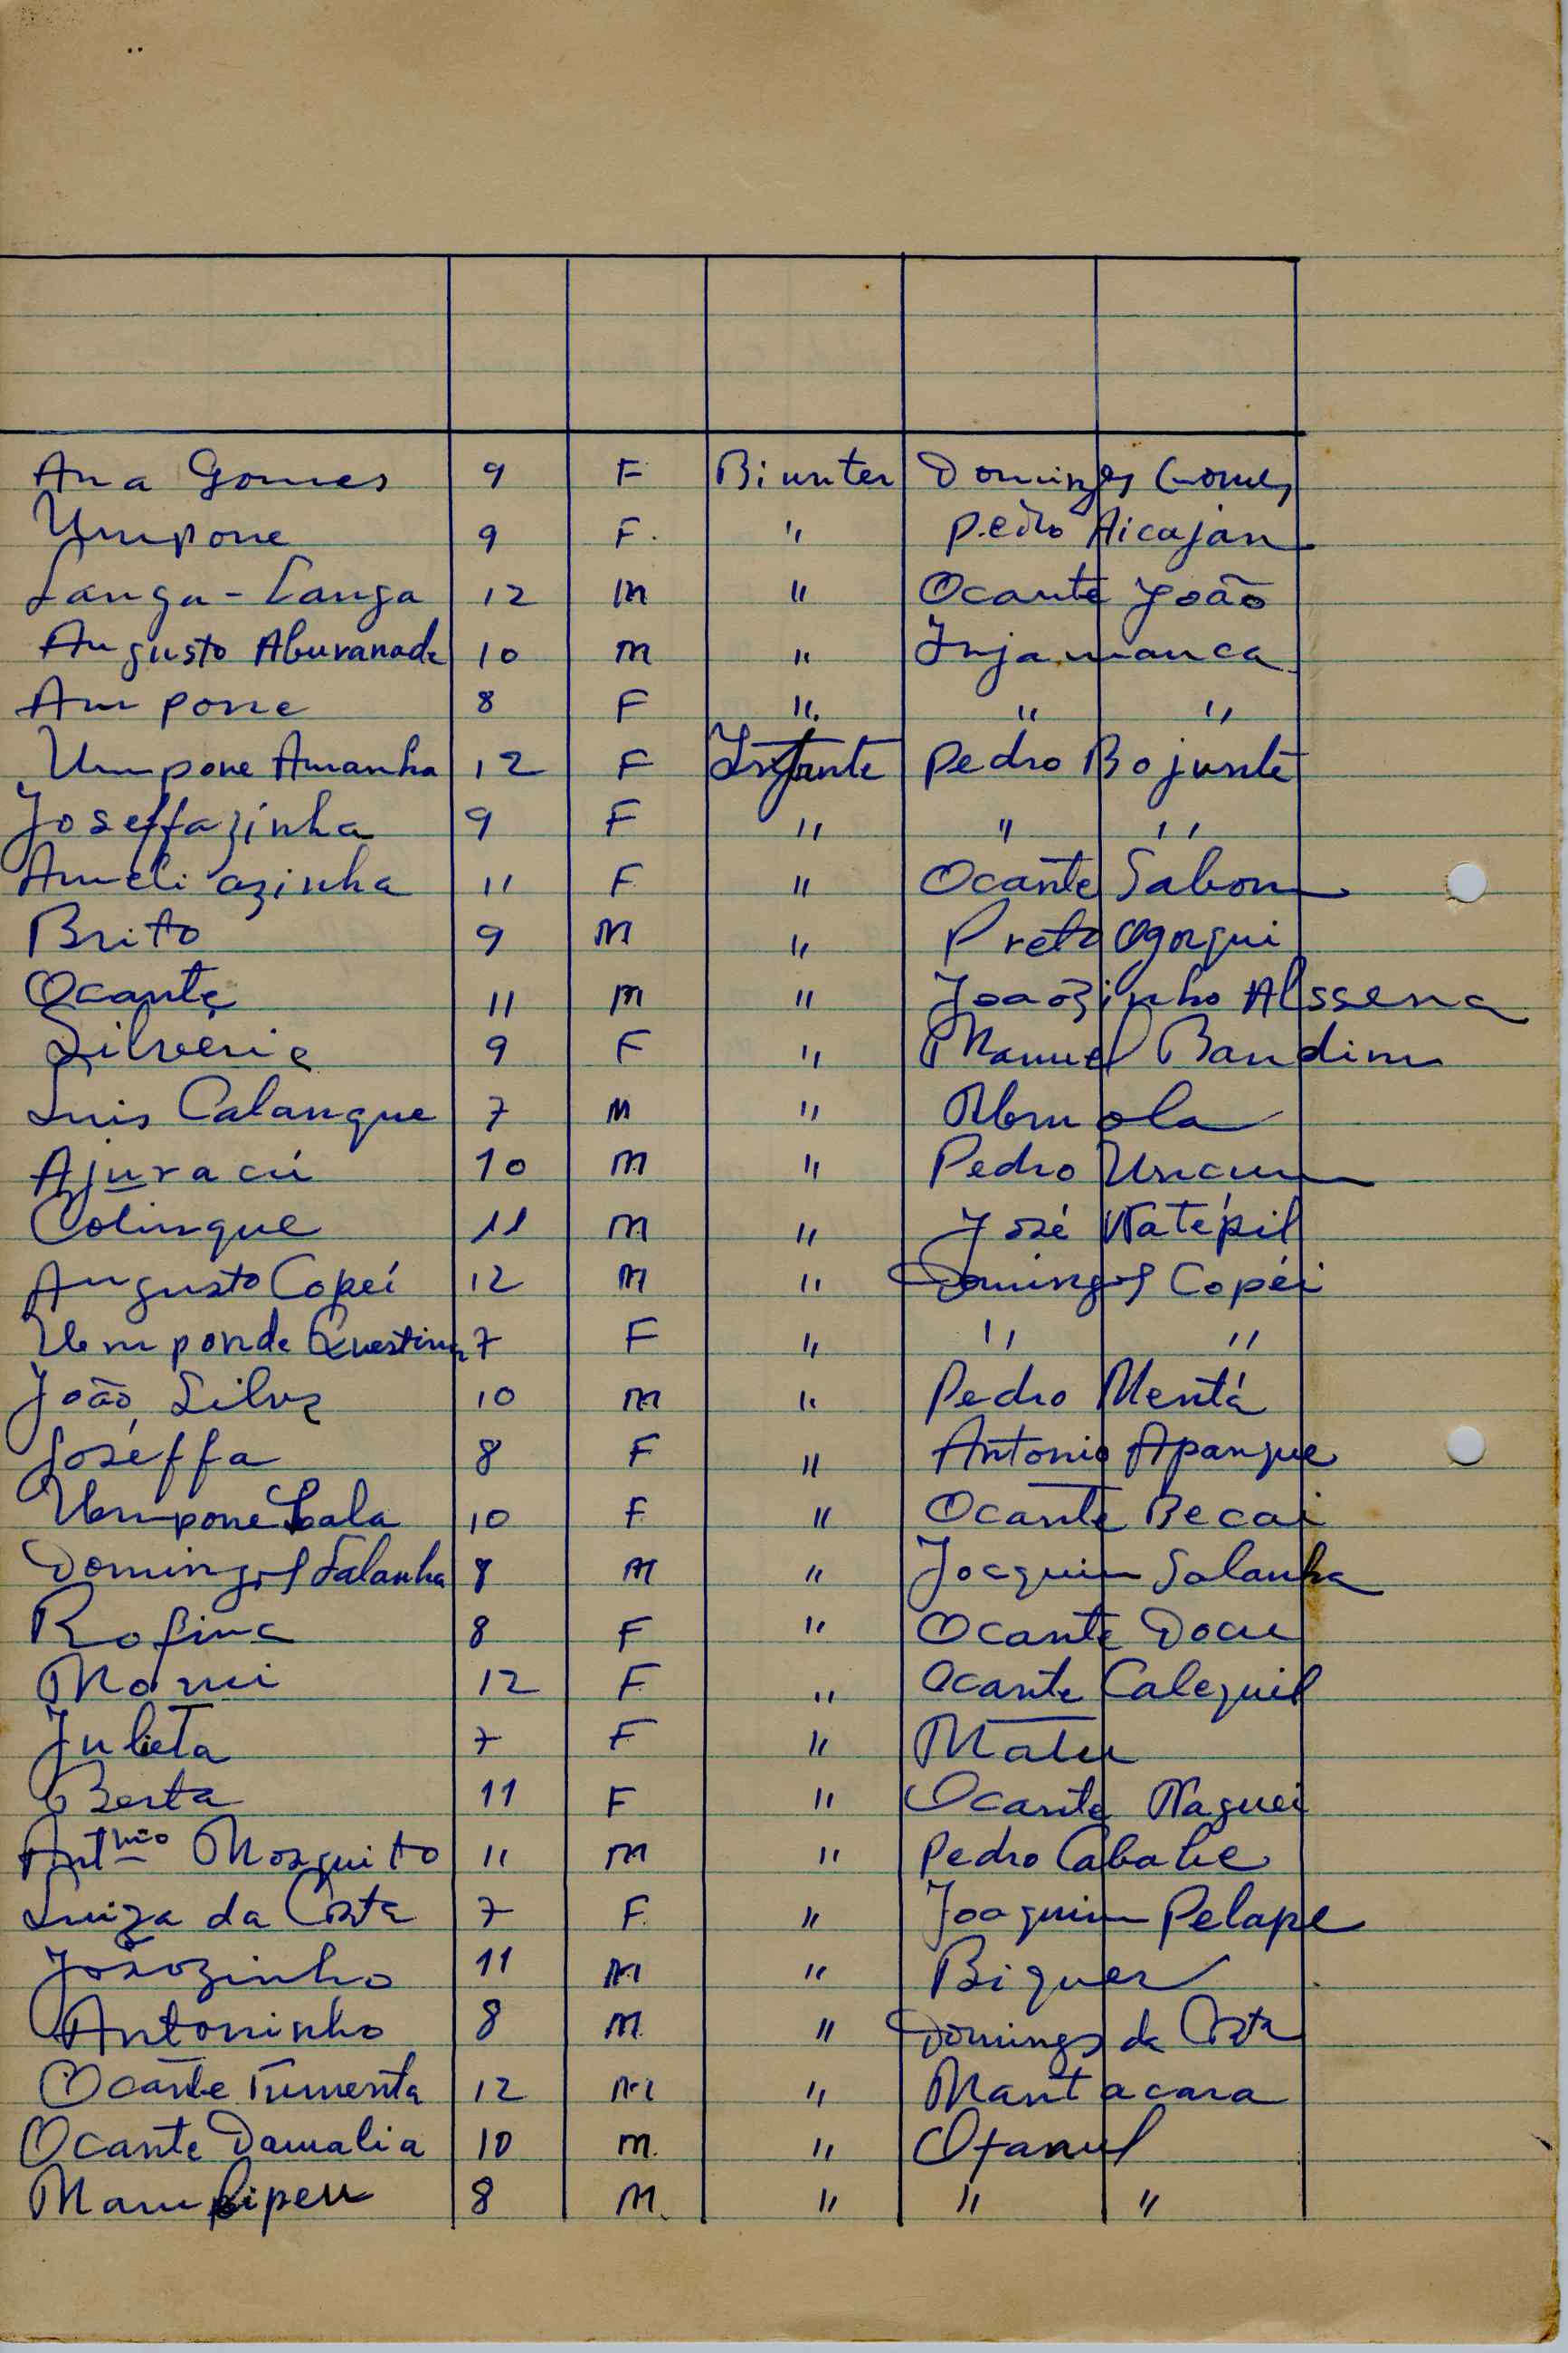 Ana Gomes 9 F Biunter Domingos Gomes
Umpone 9 F. " Pedro Aicajan
Langa-Langa 12 m " Ocante João
Augusto Aburanade 10 m " Injamanca
Ampone 8 F " " "
Umpone Amanha 12 F Infante Pedro Bojunte
Joseffazinha 9 F " " "
Ameliazinha 11 F " Ocante Sabom
Brito 9 M " Preto Ogorgui
Ocante 11 m " Joaozinho Alssena
Silveria 9 F " Manuel Bandim
Luis Calanque 7 M " Umola
Ajuracú 10 m " Pedro Uncum
Colinque 11 m " José Natépil
Augusto Copeí 12 M " Domingos Copéi
Umponde Questina 7 F " " "
João Silva 10 m " Pedro Mentá
Joséffa 8 F " Antonio Apangue
Umpone Lala 10 F " Ocante Becai
Domingos Salanha 8 M " Joaquim Salanha
Rofina 8 F " Ocante Docu
Momi 12 F " Ocante Calequil
Julieta 7 F " Matu
Berta 11 F " Ocante Naguei
António Mosquito 11 m " Pedro Cabate
Luiza da Costa 7 F " Joaquim Pelape
Joãozinho 11 M " Biquer
Antoninho 8 m " Domingos da Costa
Ocante Tumenta 12 m " Mantacara
Ocante Damalia 10 m. " Ofanul
Mampipeu 8 M. " " "